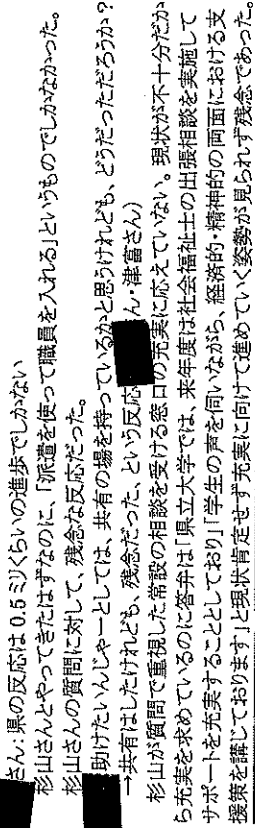 さん:県の反応は 0.5 ミリくらいの進歩でしかない
杉山さんとやってきたはずなのに、「派遣を使って職員を入れる」というものでしかなかった。
杉山さんの質問に対して、残念な反応だった。
助けたいんじゃーとしては、共有の場を持っているかと思うけれども、どうだっただろうか?
→共有はしたけれども、残念だった、という反応 ん・津富さん)
杉山が質問で重視した常設の相談を受ける窓口の充実に応えていない。現状が不十分だか
ら充実を求めているのに答弁は「県立大学では、来年度は社会福祉士の出張相談を実施して
サポートを充実することとしており」「学生の声を伺いながら、経済的・精神的の両面における支
援策を講じております」と現状肯定せず充実に向けて進めていく姿勢が見られず残念であった。